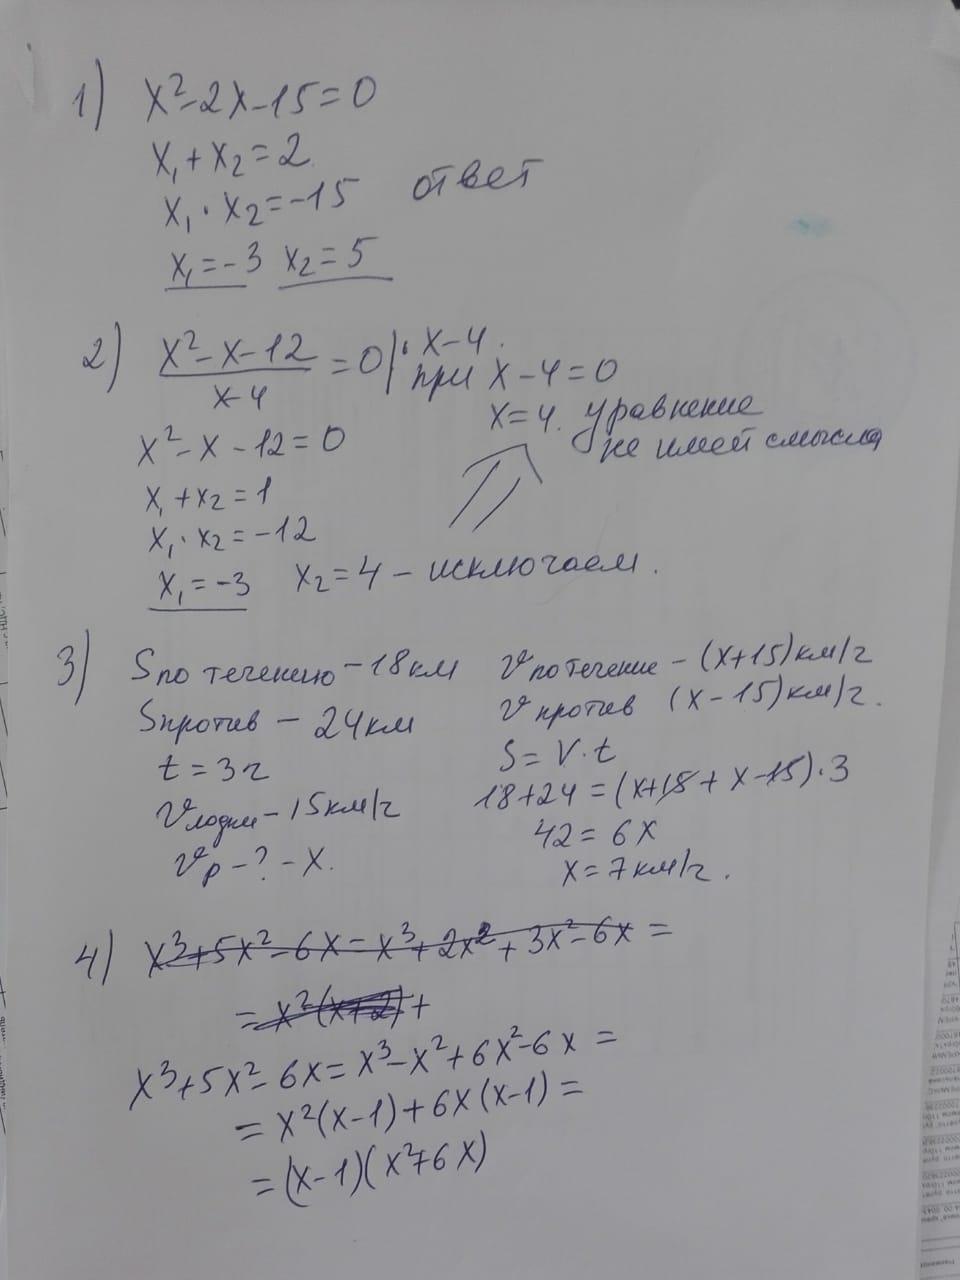 1) x²-2x-15=0
x₁+x₂=2
x₁·x₂=-15 ответ
x₁=-3 x₂=5
2) (x²-x-12)/(x-4) =0|· x-4.
при x-4=0
x=4. уравнение
не имей смысла
x²-x-12=0
x₁+x₂=1
x₁·x₂=-12
x₁=-3 x₂=4 – исключаем.
3) Sпо течению – 18 км
Sпротив – 24 км
t=3г
Vлодки – 15 км/г
Vр – ? – x.
Vпо течение – (x+15) км/г
Vпротив (x-15) км/г.
S=V·t
18+24=(x+15+x-15)·3
42=6x
x=7 км/г.
4) x³+5x²-6x=x³+2x²+3x²-6x=
=x²(x+2)+
x³+5x²-6x=x³-x²+6x²-6x=
=x²(x-1)+6x(x-1)=
=(x-1)(x²+6x)